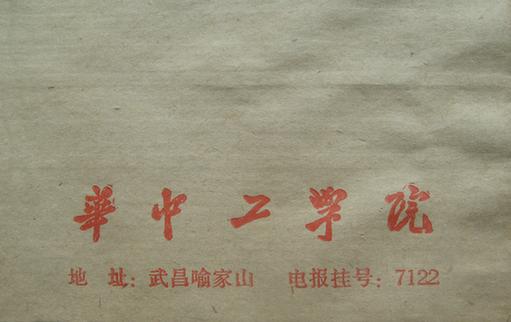 華中工学院
地 址: 武昌喻家山 电报挂号: 7122